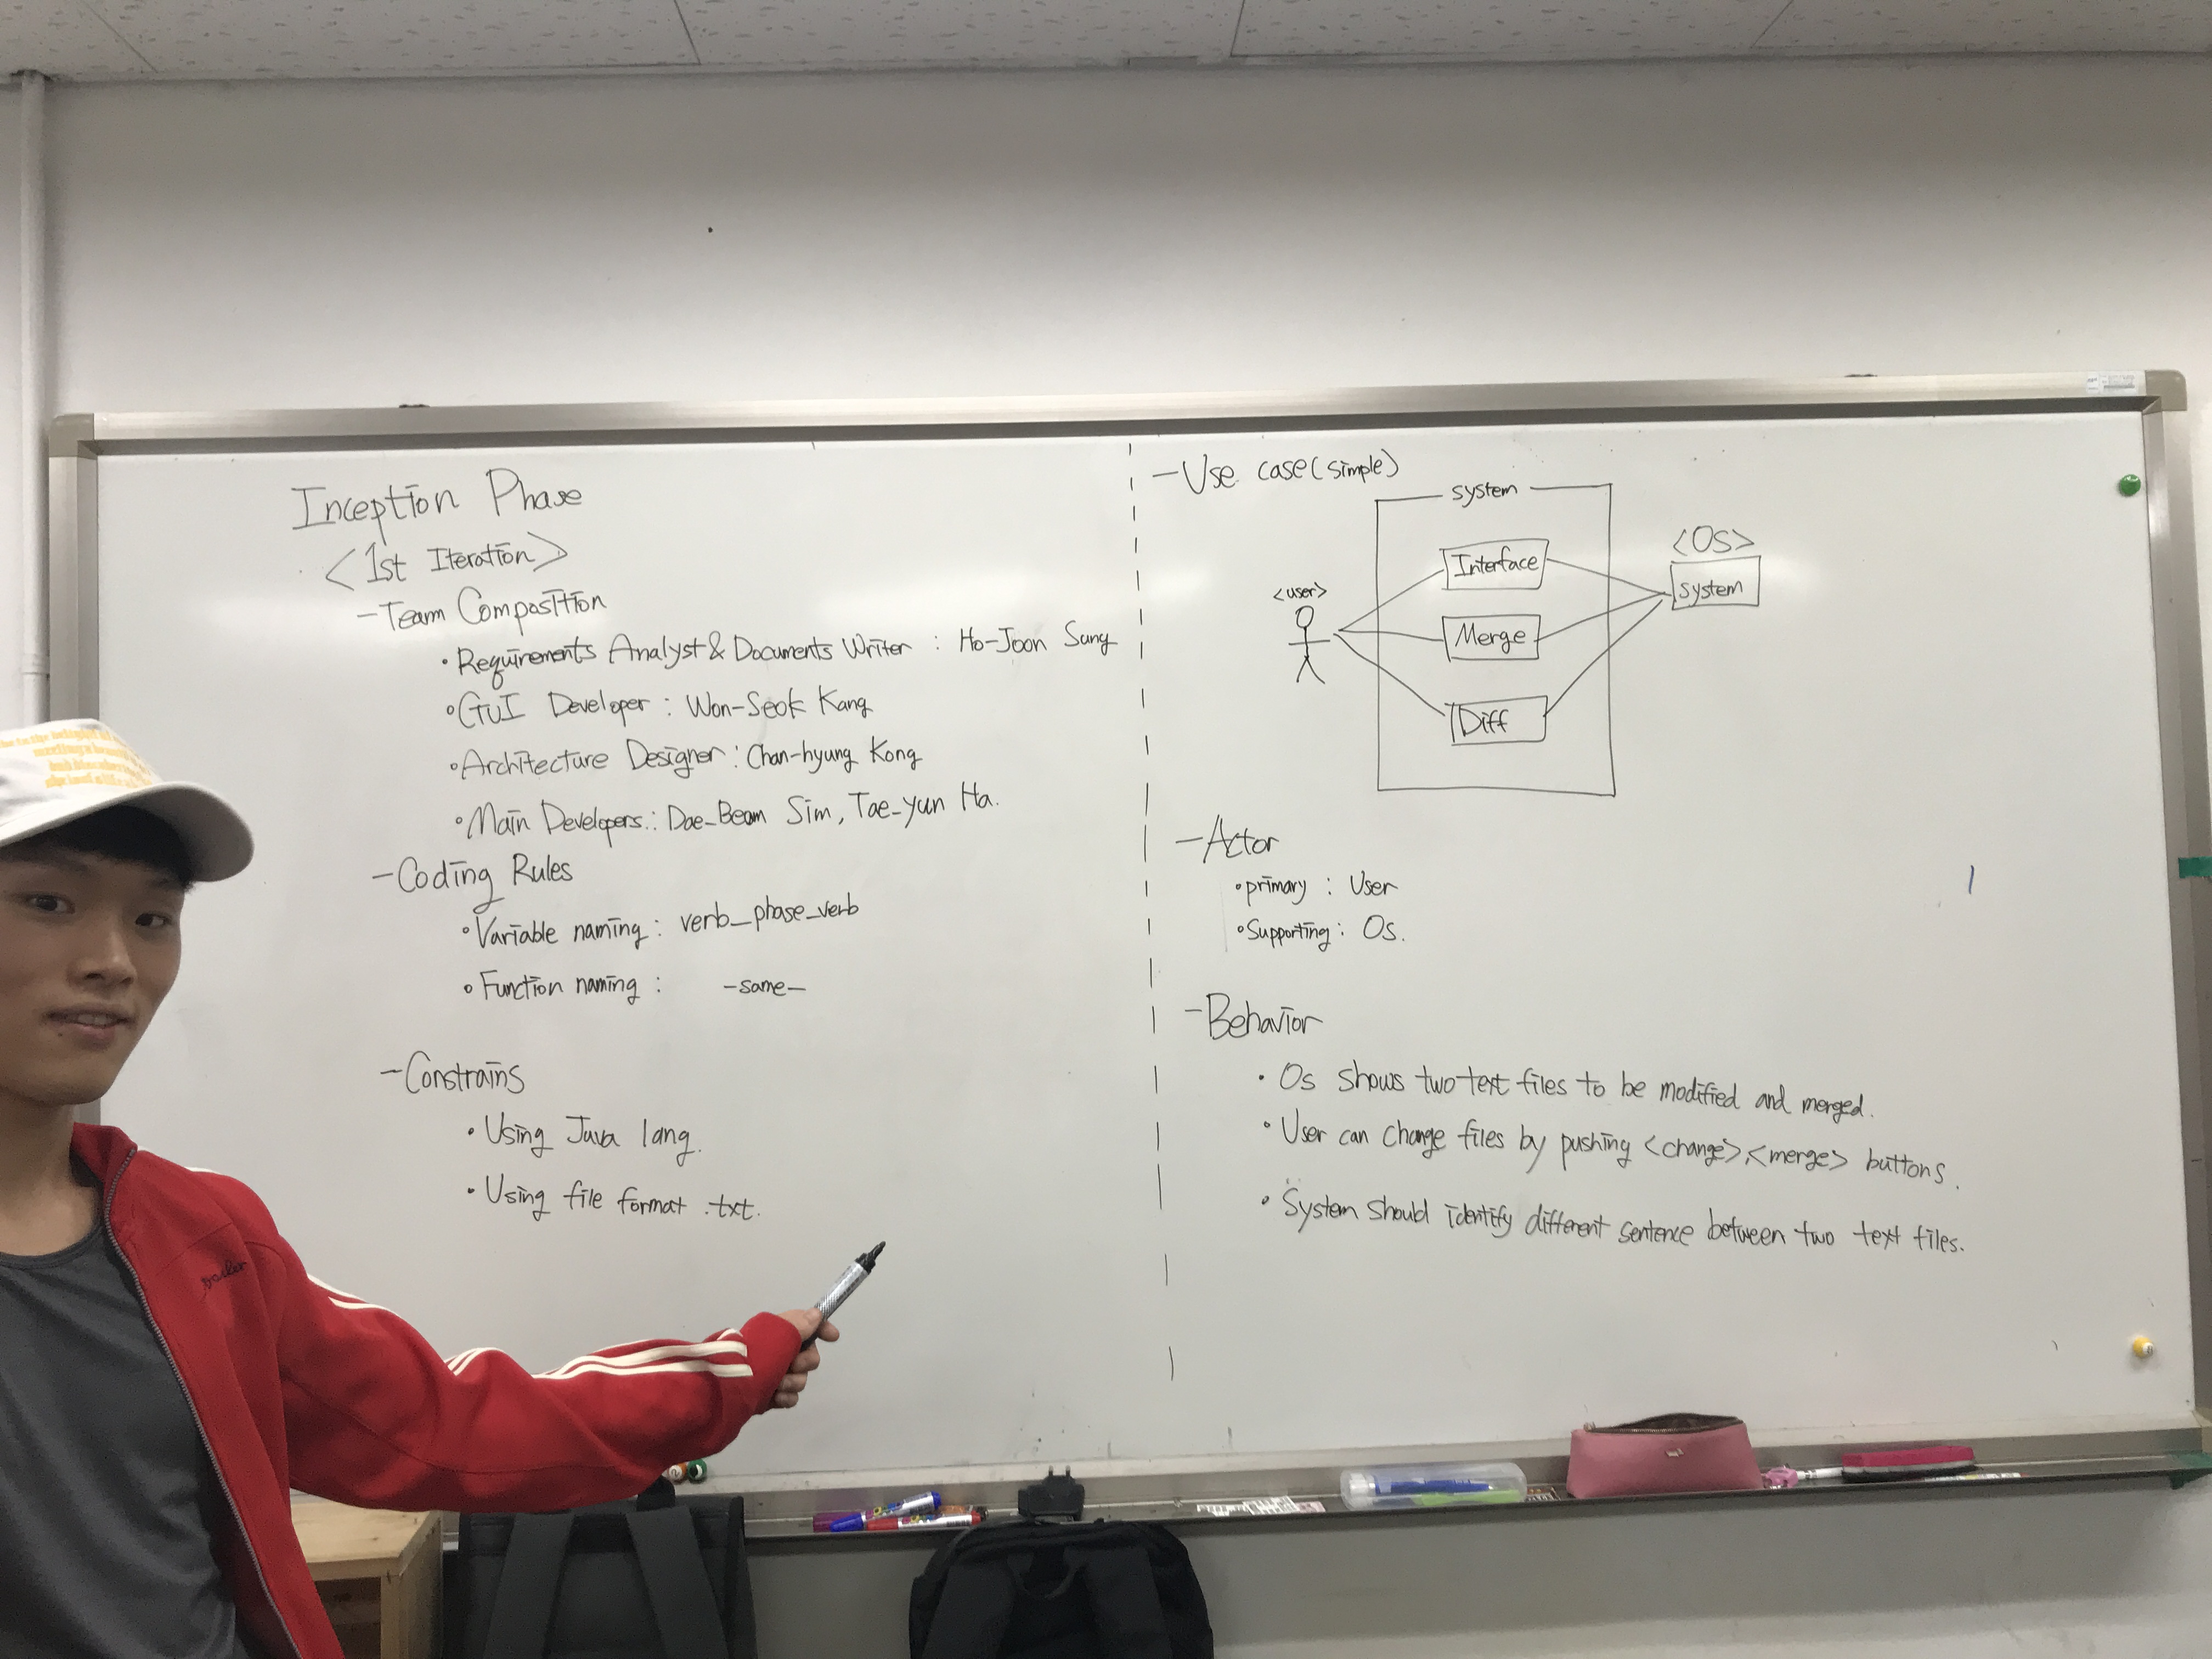 Inception Phase
<1st Iteration>
- Team Composition
• Requirements Analyst & Documents Writer : Ho-Joon Sung
• GUI Developer : Won-Seok Kang
• Architecture Designer : Chan-hyung Kong
• Main Developers : Dae-Beom Sim, Tae-yun Ha.
- Coding Rules
• Variable naming : verb_phase_verb
• Function naming : -same-
- Constrains
• Using Java lang.
• Using file format .txt.
- Use case (simple)
system
<user>
Interface
Merge
Diff
<Os>
system
- Actor
• primary : User
• Supporting : Os.
- Behavior
• Os shows two text files to be modified and merged.
• User can change files by pushing <change>,<merge> buttons.
• System should identify different sentence between two text files.